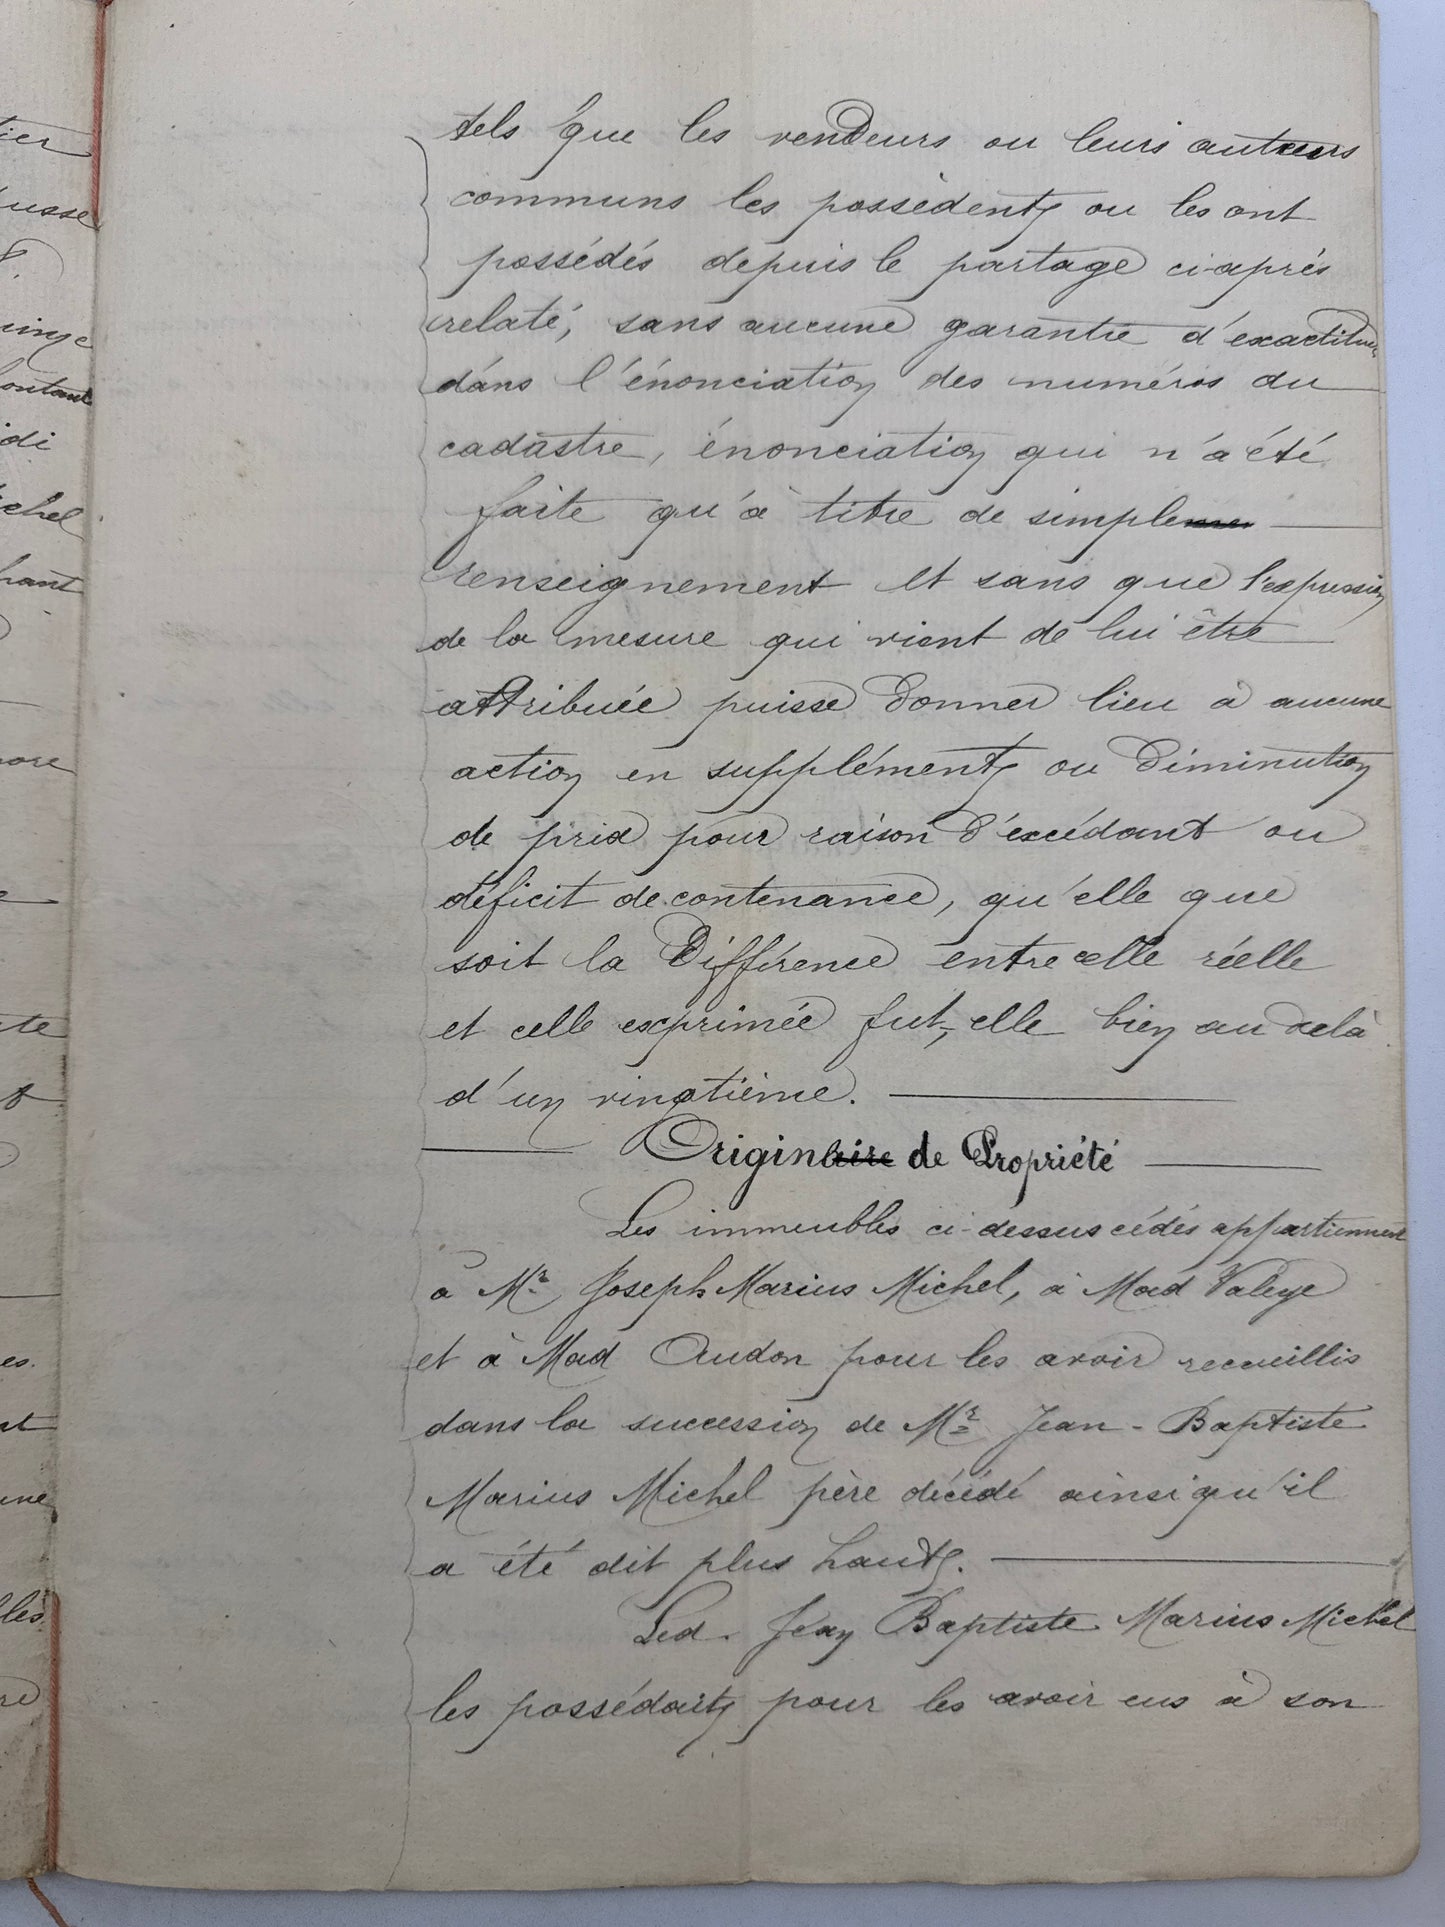 tier
usse
uinze
contant
idi
ichel
hant
tels que les vendeurs ou leurs auteurs
communs les possèdent ou les ont
possédés depuis le partage ci-après
relaté, sans aucune garantie d'exactitude
dans l'énonciation des numéros du
cadastre, énonciation qui n'a été
faite qu'à titre de simple
renseignement et sans que l'expression
de la mesure qui vient de lui être
attribuée puisse donner lieu à aucune
action en supplément ou diminution
de prix pour raison d'excédant ou
déficit de contenance, qu'elle que
soit la différence entre celle réelle
et celle exprimée fut-elle bien au delà
d'un vingtième.
Origine de Propriété
Les immeubles ci-dessus cédés appartiennent
à Mr Joseph Marius Michel, à Mad
et à Mad Audon pour les avoir recueillis
dans la succession de Mr Jean-Baptiste
Marius Michel père décédé ainsi qu'il
a été dit plus haut.
Led. Jean Baptiste Marius Michel
les possédait pour les avoir eus à son